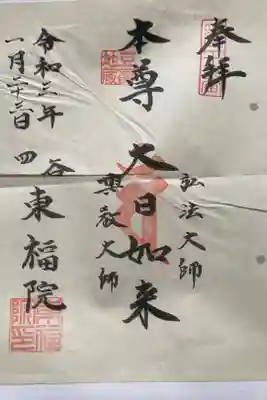 奉拝
弘法大師
本尊 大日如来
興教大師
四谷 東福院
令和三年
一月二十三日